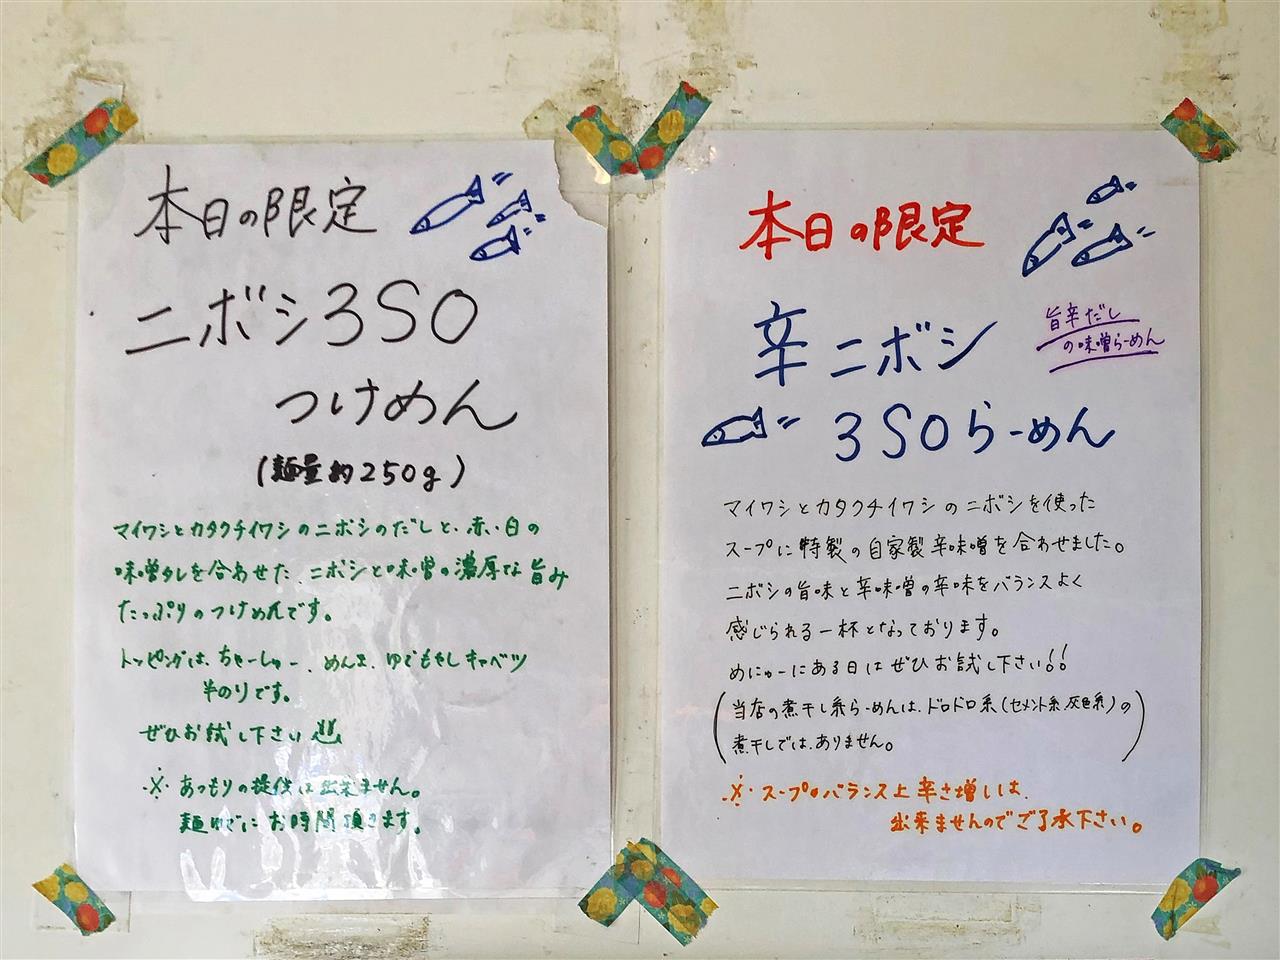 本日の限定
ニボシ3SO
つけめん
(麺量約250g)
マイワシとカタクチイワシのニボシのだしと、赤、白の
味噌タレを合わせた、ニボシと味噌の濃厚な旨み
たっぷりのつけめんです。
トッピングは、ちゃーしゅー、めんま、ゆでもやしキャベツ
半のりです。
ぜひお試し下さい!!
※ あつもりの提供は出来ません。
麺ゆでにお時間頂きます。
本日の限定
旨辛だし
の味噌らーめん
辛ニボシ
3SOらーめん
マイワシとカタクチイワシのニボシを使った
スープに特製の自家製辛味噌を合わせました。
ニボシの旨味と辛味噌の辛味をバランスよく
感じられる一杯となっております。
めにゅーにある日はぜひお試し下さい!!
(当店の煮干し系らーめんは、ドロドロ系(セメント系、灰色系)の
煮干しでは、ありません。)
※ スープのバランス上辛さ増しは、
出来ませんのでご了承下さい。